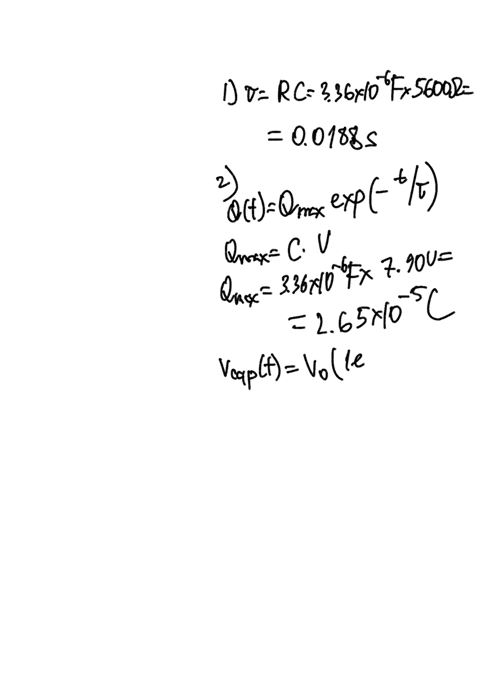 1) τ = RC = 3.36×10⁻⁶F×5600Ω=
= 0.0188s
2)
Q(t)=Qmax exp(-t/τ)
Qmax = C·V
Qmax = 3.36×10⁻⁶F× 7.90V=
= 2.65×10⁻⁵C
Vcap(t)=V₀(1e